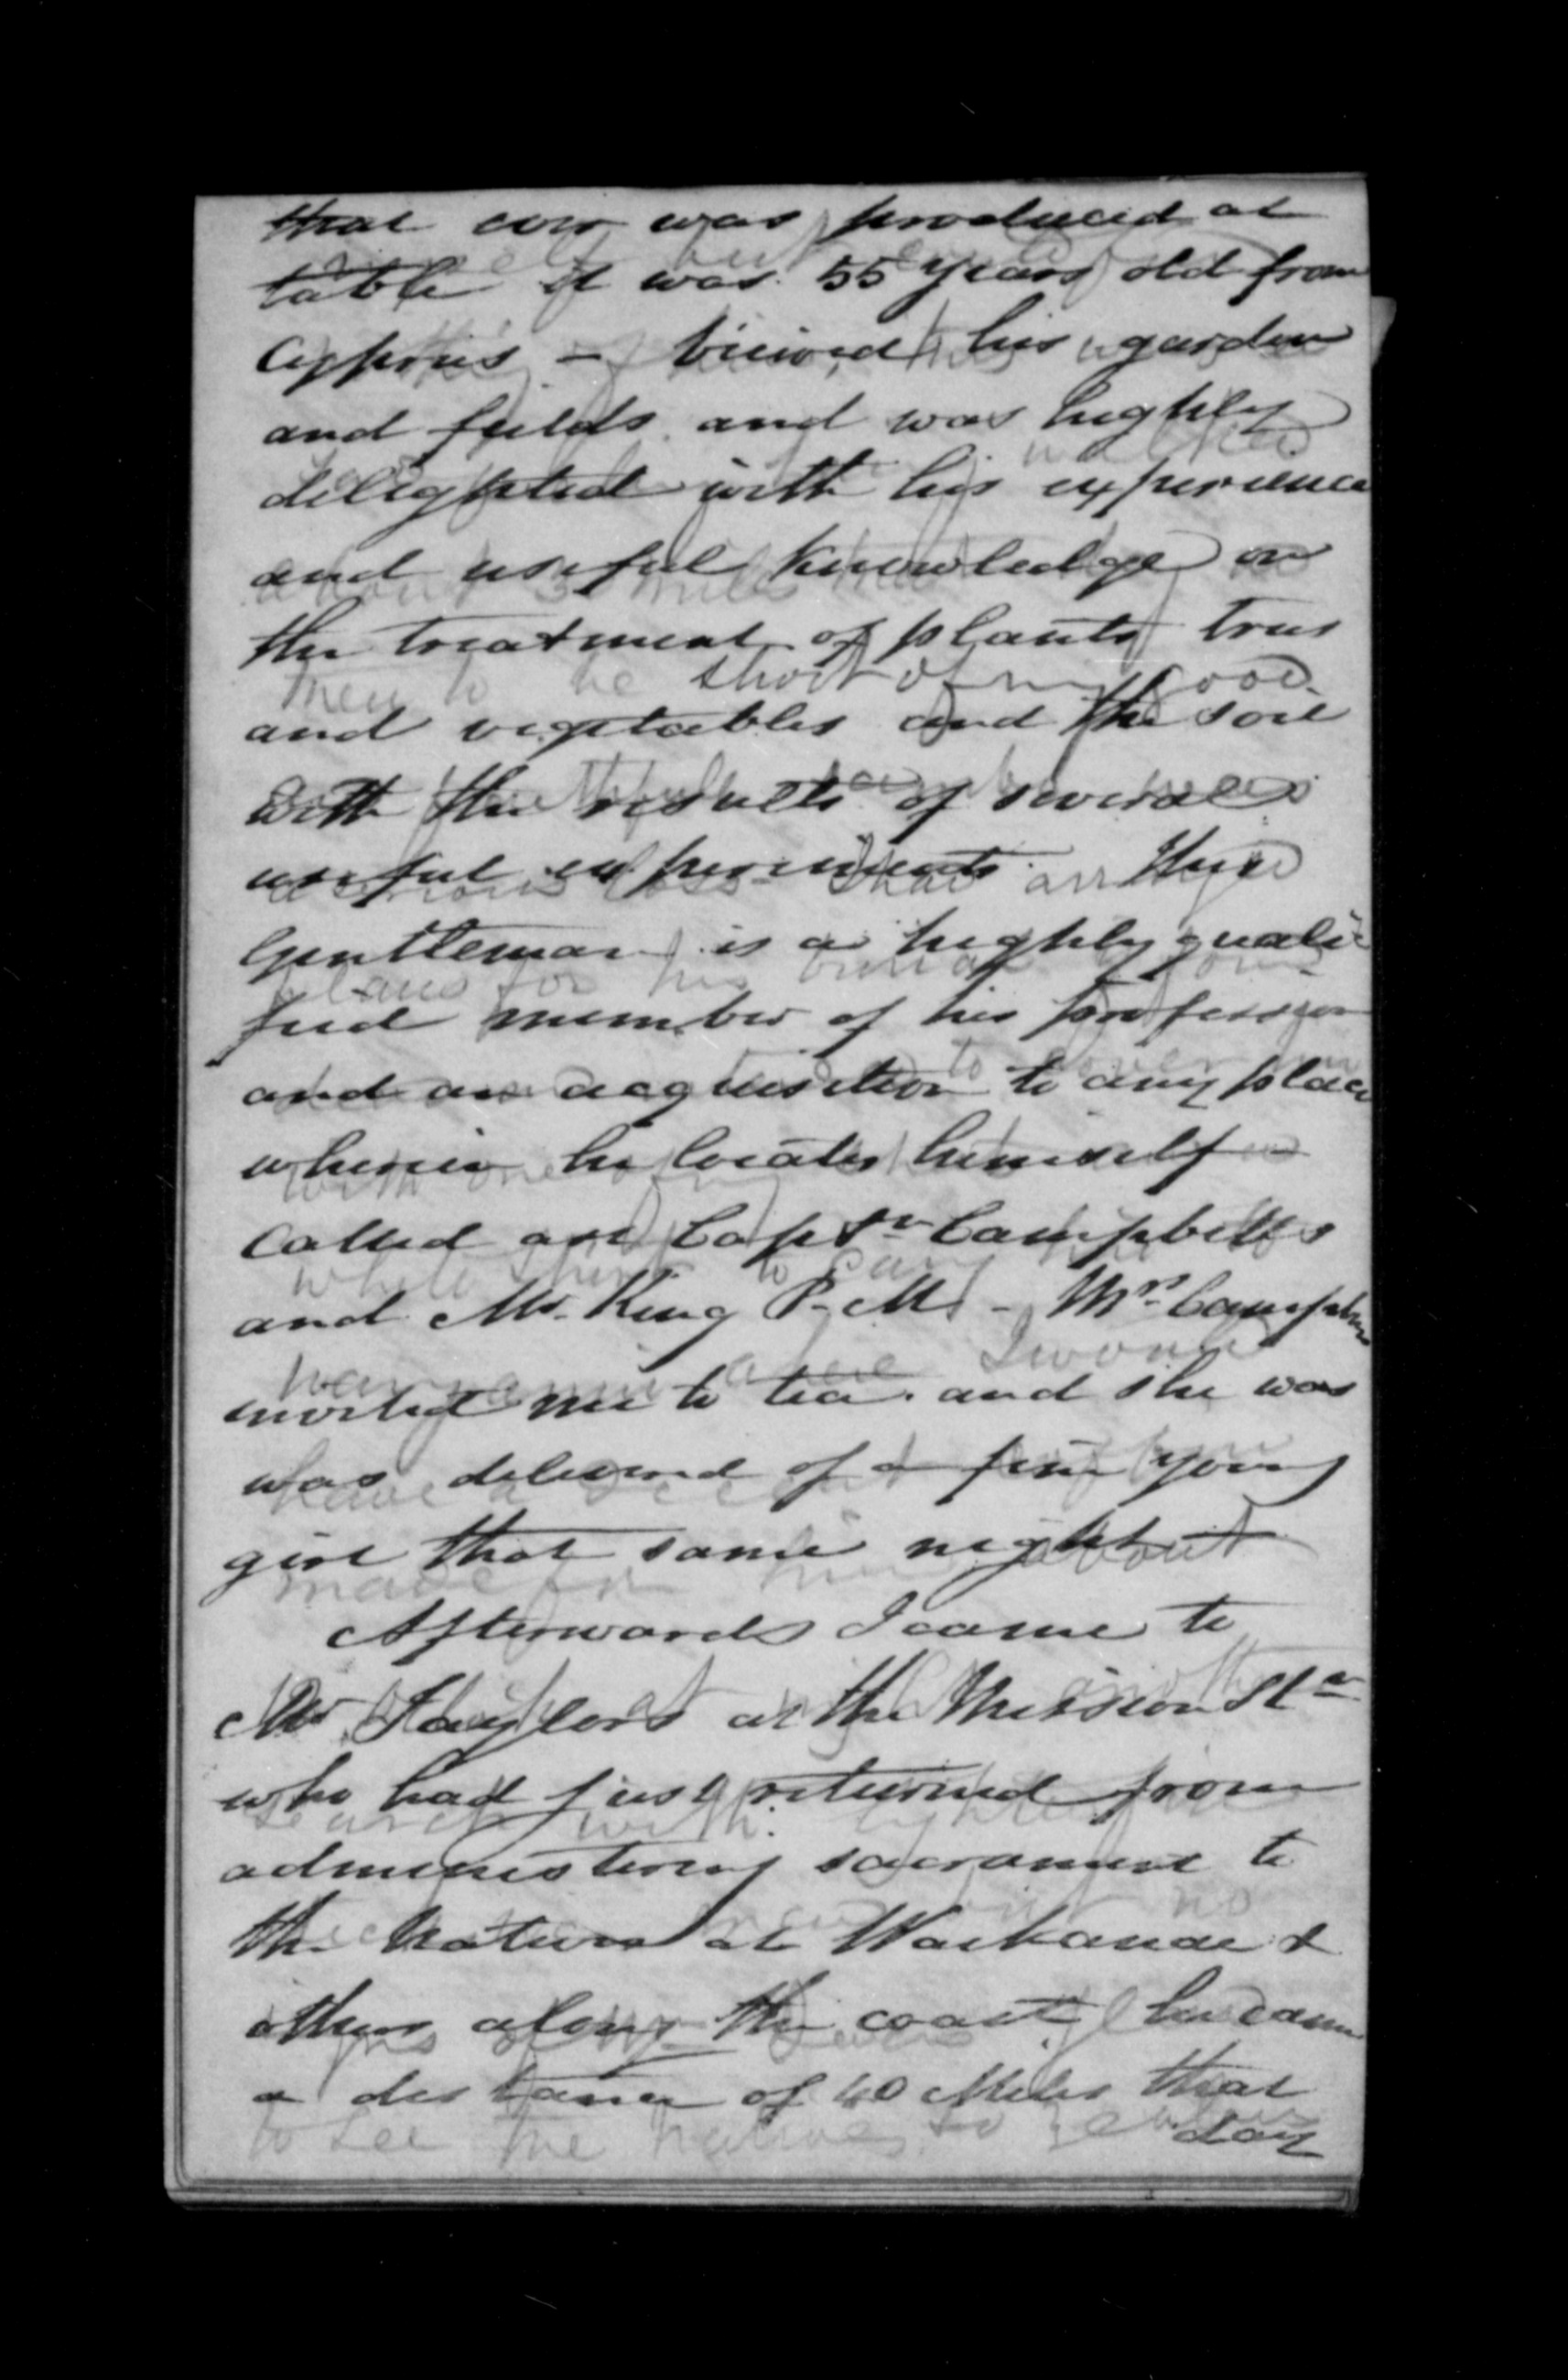 that ever was produced at
table it was 55 years old from
Cyprus - Viewed his garden
and fields and was highly
delighted with his experience
and useful knowledge on
the treatment of plants trees
and vegetables and the soil
with the results of several
useful experiments. This
Gentleman is a highly quali-
fied member of his profession
and an acquisition to any place
wherein he locates himself -
Called at Captn Campbells
and Mr. King R. M. - Mrs Campbell
invited me to tea. and she was
was delivered of a fine young
girl that same night
Afterwards I came to
Mr Taylors at the Mission Stn
who had just returned from
administering sacrament to
the Natives at &
others along the coast, he came
a distance of 40 Miles that
day